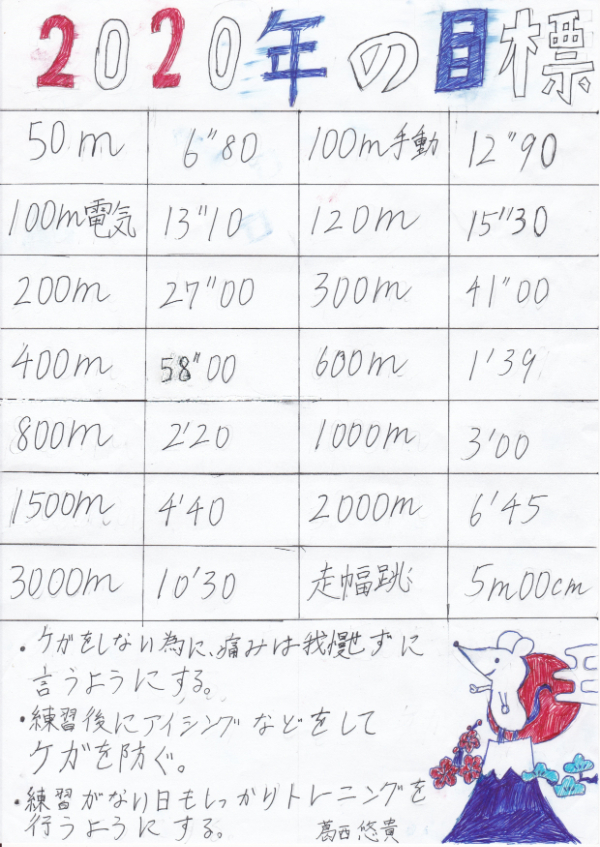 2020年の目標
50m 6"80 100m手動 12"90
100m電気 13"10 120m 15"30
200m 27"00 300m 41"00
400m 58"00 600m 1'39
800m 2'20 1000m 3'00
1500m 4'40 2000m 6'45
3000m 10'30 走幅跳 5m00cm
・ケガをしない為に、痛みは我慢せずに
言うようにする。
・練習後にアイシングなどをして
ケガを防ぐ。
・練習がない日もしっかりトレーニングを
行うようにする。 葛西悠貴